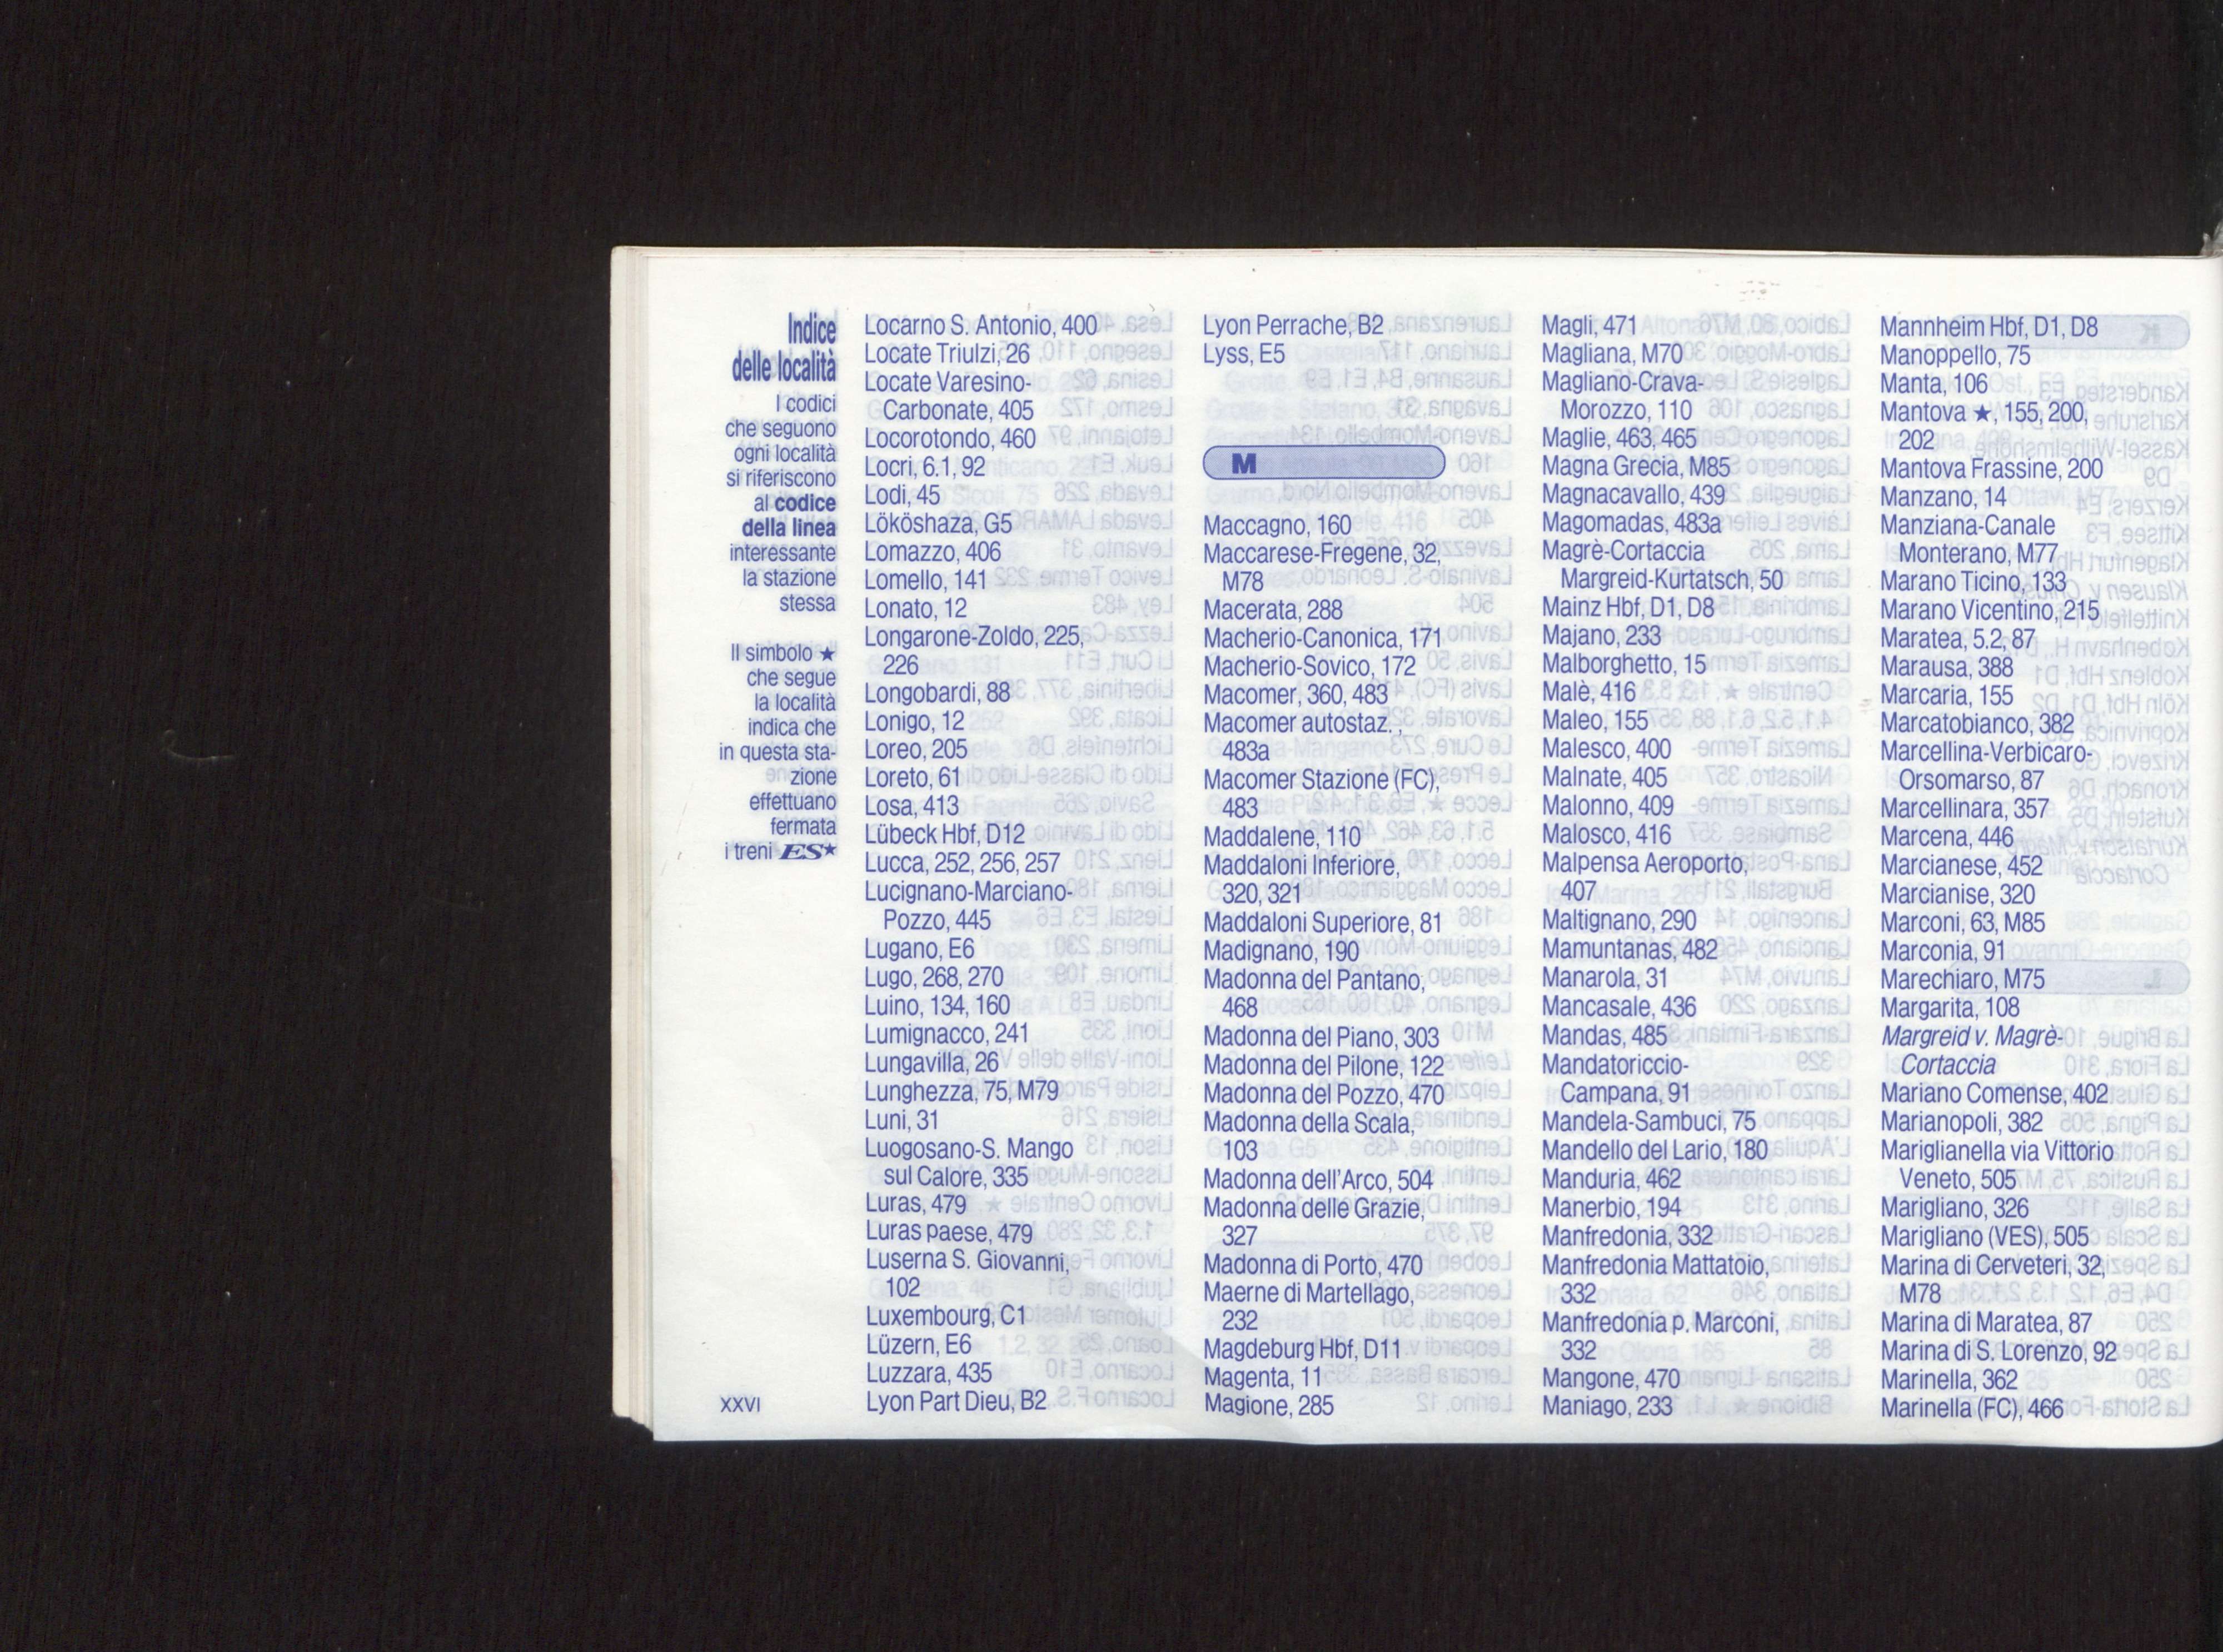 Indice
delle località
I codici
che seguono
ogni località
si riferiscono
al codice
della linea
interessante
la stazione
stessa
Il simbolo ★
che segue
la località
indica che
in questa sta-
zione
effettuano
fermata
i treni ES★
XXVI
Locarno S. Antonio, 400
Locate Triulzi, 26
Locate Varesino-
Carbonate, 405
Locorotondo, 460
Locri, 6.1, 92
Lodi, 45
Lököshaza, G5
Lomazzo, 406
Lomello, 141
Lonato, 12
Longarone-Zoldo, 225,
226
Longobardi, 88
Lonigo, 12
Loreo, 205
Loreto, 61
Losa, 413
Lübeck Hbf, D12
Lucca, 252, 256, 257
Lucignano-Marciano-
Pozzo, 445
Lugano, E6
Lugo, 268, 270
Luino, 134, 160
Lumignacco, 241
Lungavilla, 26
Lunghezza, 75, M79
Luni, 31
Luogosano-S. Mango
sul Calore, 335
Luras, 479
Luras paese, 479
Luserna S. Giovanni,
102
Luxembourg, C1
Lüzern, E6
Luzzara, 435
Lyon Part Dieu, B2
Lyon Perrache, B2
Lyss, E5
M
Maccagno, 160
Maccarese-Fregene, 32,
M78
Macerata, 288
Macherio-Canonica, 171
Macherio-Sovico, 172
Macomer, 360, 483
Macomer autostaz. ,
483a
Macomer Stazione (FC),
483
Maddalene, 110
Maddaloni Inferiore,
320, 321
Maddaloni Superiore, 81
Madignano, 190
Madonna del Pantano,
468
Madonna del Piano, 303
Madonna del Pilone, 122
Madonna del Pozzo, 470
Madonna della Scala,
103
Madonna dell'Arco, 504
Madonna delle Grazie,
327
Madonna di Porto, 470
Maerne di Martellago,
232
Magdeburg Hbf, D11
Magenta, 11
Magione, 285
Magli, 471
Magliana, M70
Magliano-Crava-
Morozzo, 110
Maglie, 463, 465
Magna Grecia, M85
Magnacavallo, 439
Magomadas, 483a
Magrè-Cortaccia
Margreid-Kurtatsch, 50
Mainz Hbf, D1, D8
Majano, 233
Malborghetto, 15
Malè, 416
Maleo, 155
Malesco, 400
Malnate, 405
Malonno, 409
Malosco, 416
Malpensa Aeroporto,
407
Maltignano, 290
Mamuntanas, 482
Manarola, 31
Mancasale, 436
Mandas, 485
Mandatoriccio-
Campana, 91
Mandela-Sambuci, 75
Mandello del Lario, 180
Manduria, 462
Manerbio, 194
Manfredonia, 332
Manfredonia Mattatoio,
332
Manfredonia p. Marconi,
332
Mangone, 470
Maniago, 233
Mannheim Hbf, D1, D8
Manoppello, 75
Manta, 106
Mantova ★, 155, 200,
202
Mantova Frassine, 200
Manzano, 14
Manziana-Canale
Monterano, M77
Marano Ticino, 133
Marano Vicentino, 215
Maratea, 5.2, 87
Marausa, 388
Marcaria, 155
Marcatobianco, 382
Marcellina-Verbicaro-
Orsomarso, 87
Marcellinara, 357
Marcena, 446
Marcianese, 452
Marcianise, 320
Marconi, 63, M85
Marconia, 91
Marechiaro, M75
Margarita, 108
Margreid v. Magrè-
Cortaccia
Mariano Comense, 402
Marianopoli, 382
Mariglianella via Vittorio
Veneto, 505
Marigliano, 326
Marigliano (VES), 505
Marina di Cerveteri, 32,
M78
Marina di Maratea, 87
Marina di S. Lorenzo, 92
Marinella, 362
Marinella (FC), 466